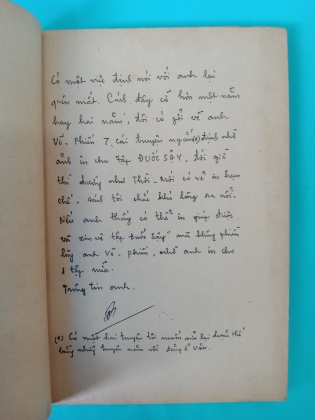 Có một việc định nói với anh lại
quên mất. Cách đây cỡ hơn một năm
hay hai năm, tôi có gửi về anh
Võ. Phiến 7 cái truyện ngắn(*) định nhờ
anh in cho tập ĐUỐC SẬY, tới giờ
thì dường như Thời. Mới có vẻ in hạn
chế, sách tôi chắc khó lòng ra nổi.
Nếu anh thấy có thể in giúp được
xin về tập Đuốc Sậy mà không phiền
lòng anh Võ. Phiến, nhờ anh in cho
1 tập nữa.
Trông tin anh.
(*) Có một hai truyện tôi muốn rút lại
bằng những truyện năm rồi đăng ở Văn.